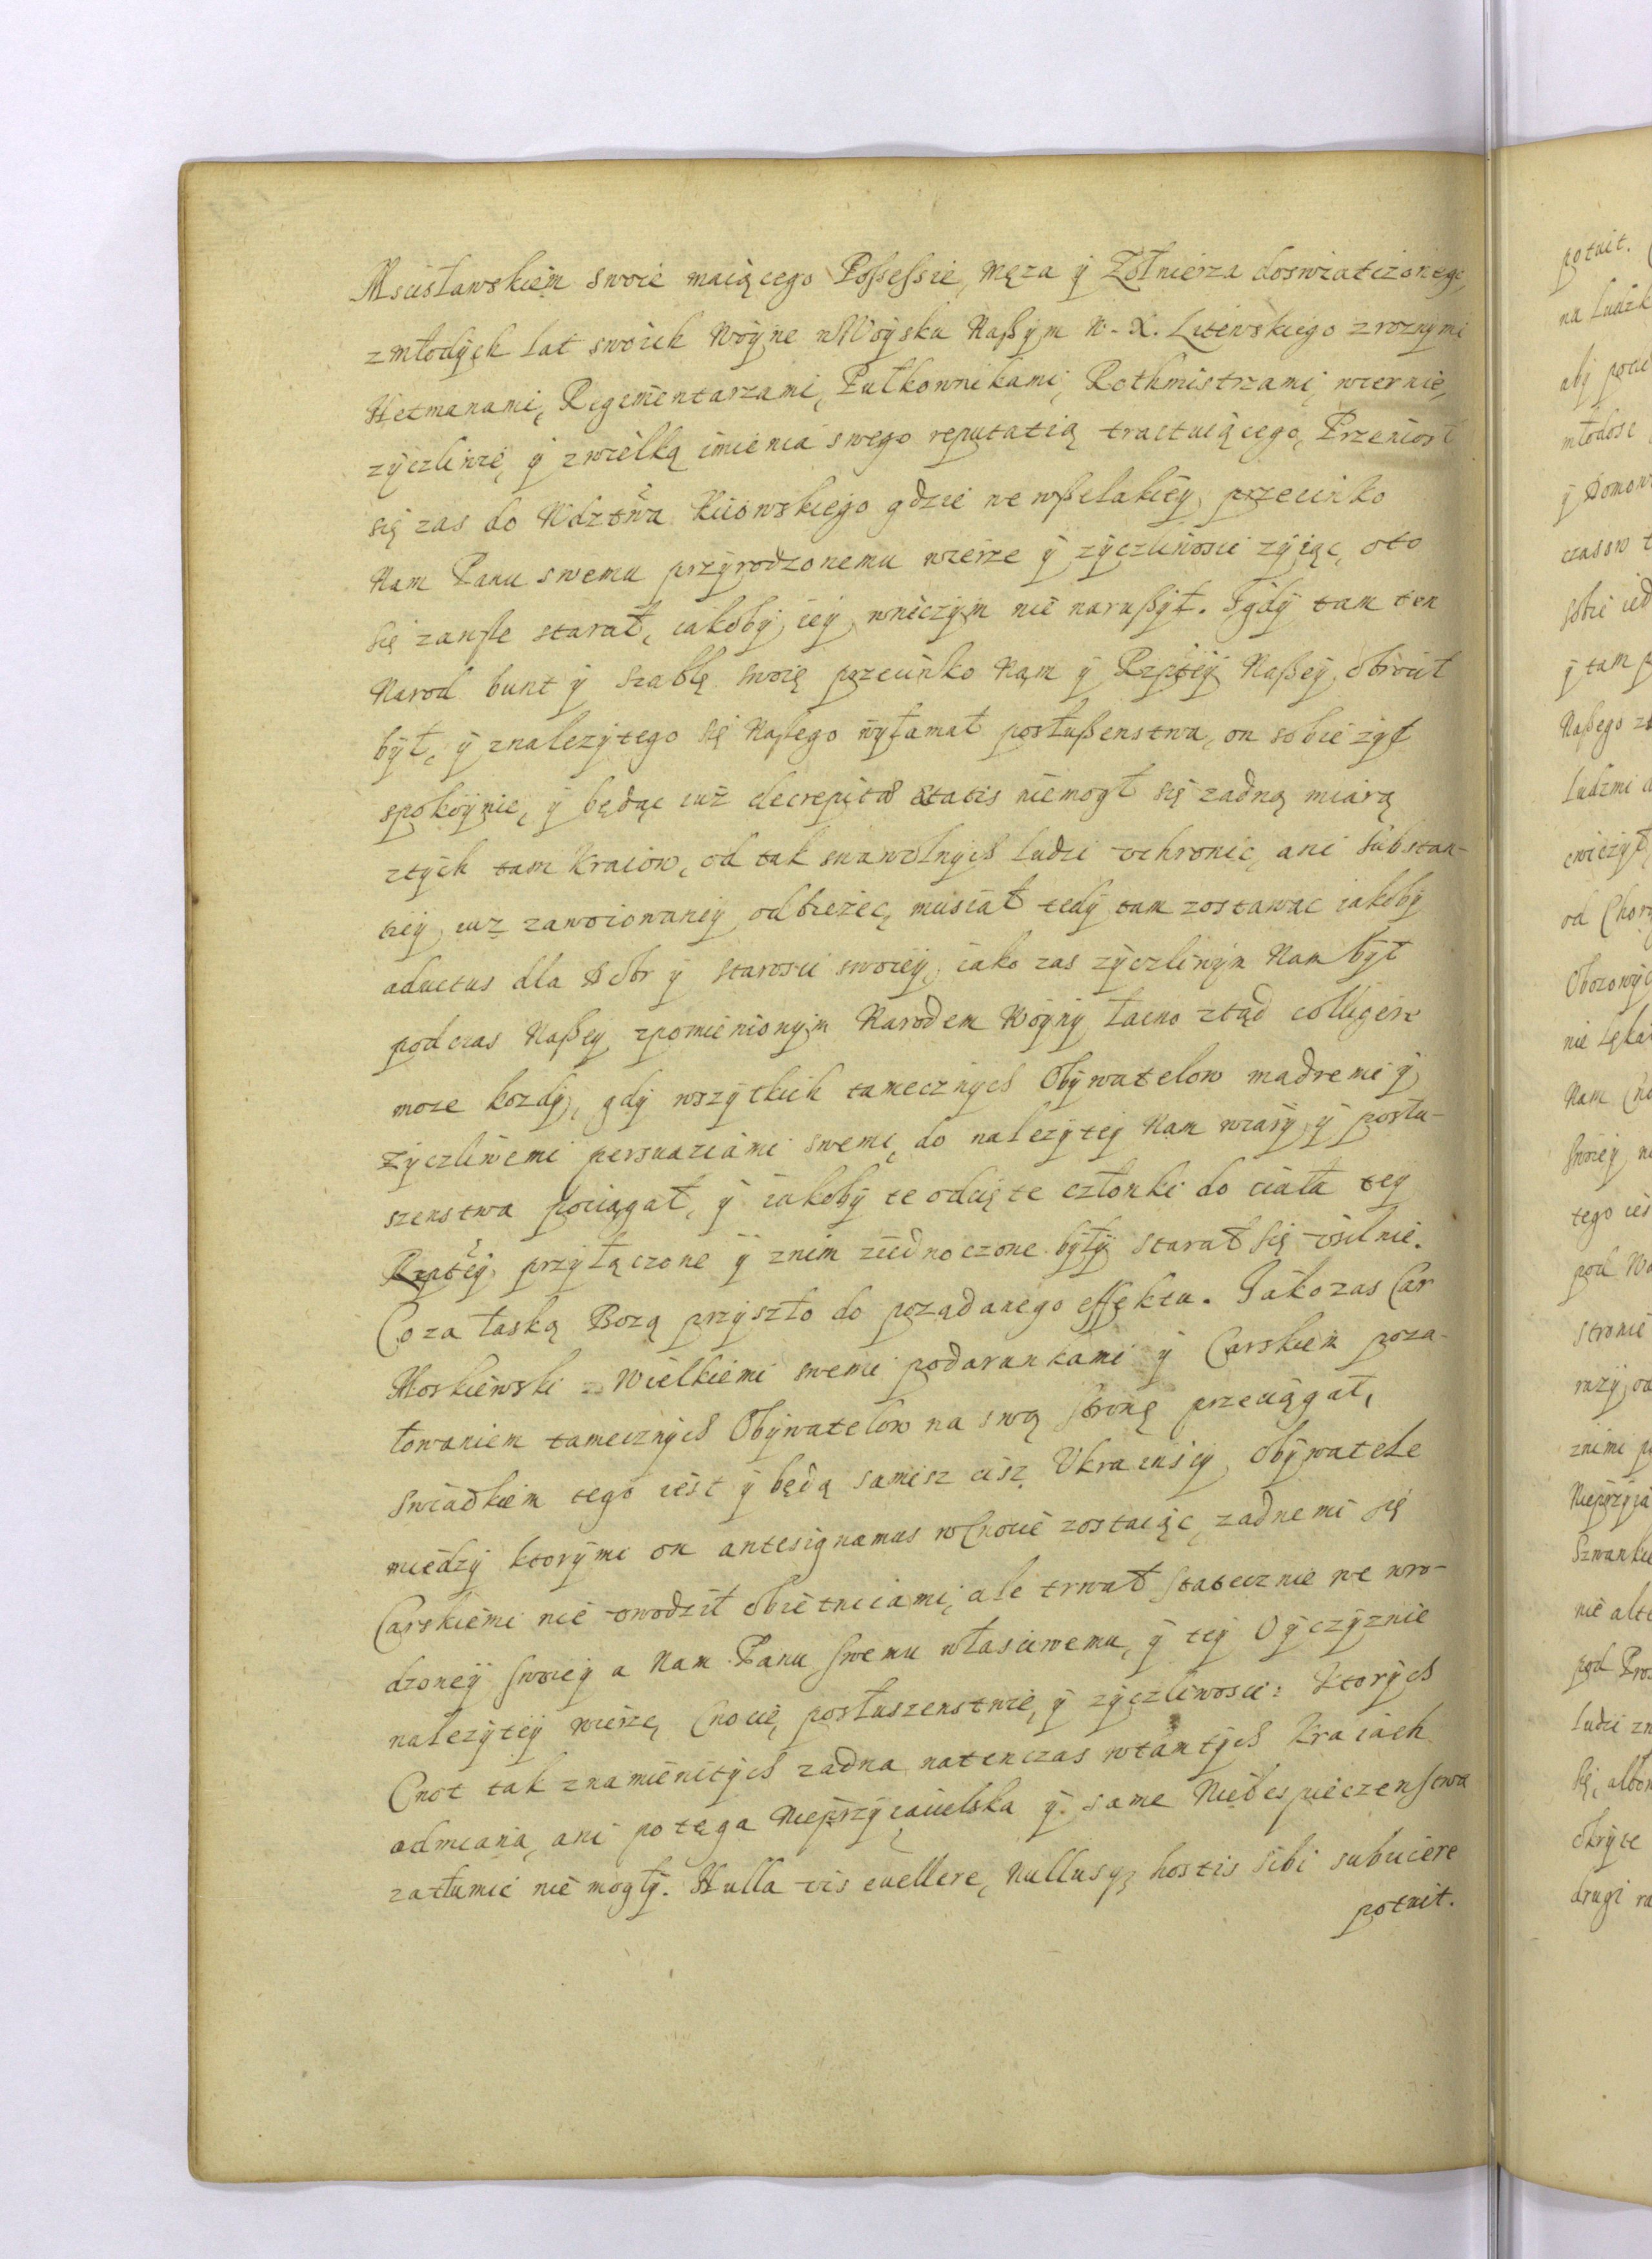 Mscisławskiem swoie maiącego Possessie, Męza ÿ Zołnierza doswiatczonego,
z młodÿch lat swoich Woÿne w Woÿsku Naßÿm W. X. Litewskiego z roznÿmi
Hetmanami, Regimentarzami, Pułkownikami, Rothmistrzami, wiernie,
zÿczliwie, ÿ z wielką imienia swego reputatią tractuiącego, Przeniosł
się zas do Wdztwa Kiiowskiego gdzie we wßelakiey przeciwko
Nam Panu swemu przÿrodzonemu wierze ÿ zÿczliwosci zÿiąc, oto
się zawsse starał, iakobÿ ieÿ wniczÿm nie narußÿł. I gdÿ tam ten
Narod bunt ÿ szablę swoię przeciwko Nam ÿ Rzptëÿ Naßeÿ obrocił
bÿł, ÿ z nalezÿtego się Naßego wÿłamał posłußenstwa, on sobie zÿł
spokoÿnie, ÿ będąc iuż decrepitæ ætatis niemogł się zadną miarą
ztÿch tam Kraiow, od tak swawolnÿch ludzi vchronic, ani substan-
tieÿ iuz zawoiowaneÿ odbiezec, musiał tedÿ tam zostawac iakobÿ
aductus dla Dobr ÿ starosci swoieÿ, iako zas zÿczliwÿm Nam bÿł
podczas Naßeÿ zpomienionÿm Narodem Woÿnÿ łacno ztąd colligere
moze kozdÿ, gdÿ wszÿtkich tamecznÿch Obÿwatelow mądremi ÿ
Zÿczliwemi perswaziami swemi, do nalezÿteÿ Nam wiarÿ ÿ posłu-
szenstwa pociągał, ÿ iakobÿ te odcięte członki do ciała teÿ
Rzptëÿ przÿłączone ÿ znim ziednoczone bÿłÿ starał się vsilnie.
Co za łaską Bozą przÿszło do poządanego effektu. Jako zas Car
Moskiewski Wielkiemi swemi podarunkami ÿ Carskiem poza-
łowaniem tamecznÿch Obÿwatelow na swą stronę przeciągał,
swiadkiem tego iest ÿ będą samisz cisz Vkrainscÿ Obÿwatele
międzÿ ktorÿmi on antesignamus w Cnocie zostaiąc, zadnemi się
Carskiemi nie vwodził obietnicami, ale trwał statecznie we wro-
dzoneÿ swoieÿ a Nam Panu swemu własciwemu, ÿ teÿ Oÿczÿznie
nalezÿteÿ wierze, Cnocie, posłuszenstwie, ÿ zÿczliwosci: Ktorÿch
Cnot tak znamienitÿch zadna natenczas wtamtÿch Kraiach
odmiana, ani potęga Nieprzÿiacielska ÿ same Niebespieczenstwa
zatłumic nie mogłÿ. Nulla vis euellere, Nullusq; hostis sibi subiicere
potuit.